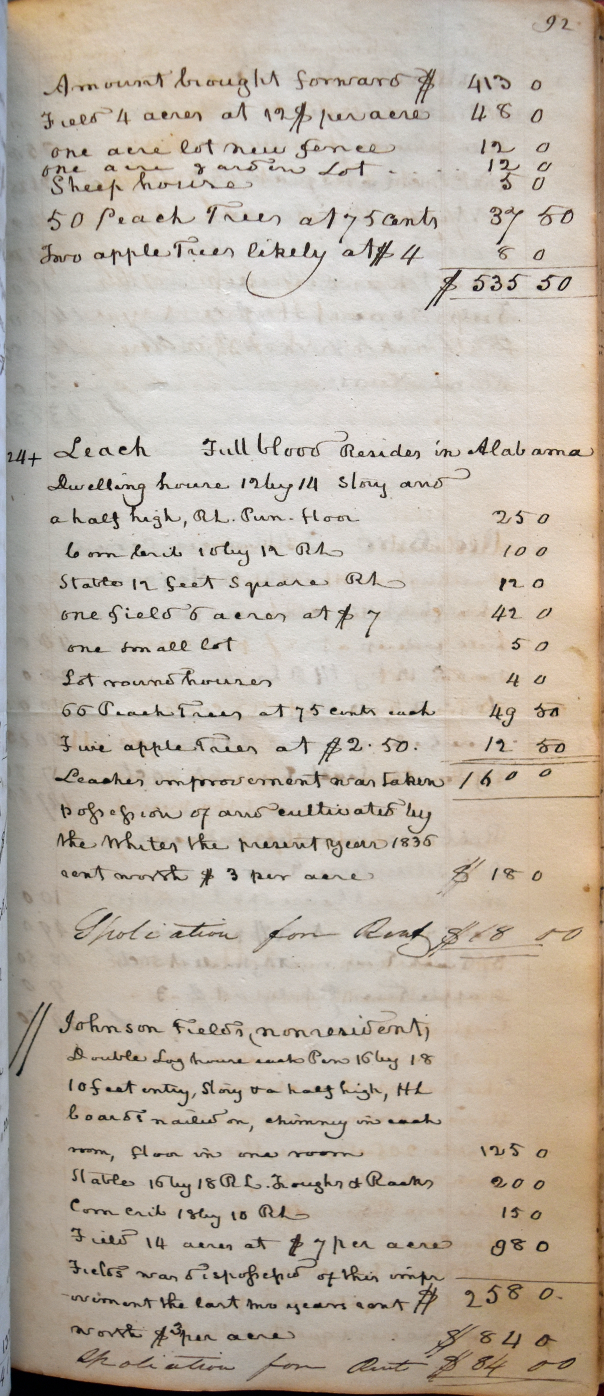 92
Amount brought forward $ 413 0
Field 4 acres at 12$ per acre 48 0
one acre lot new fence 12 0
one acre garden Lot . . . 12 0
Sheep house 5 0
50 Peach Trees at 75 cents 37 50
Two apple Trees likely at $ 4 8 0
$ 535 50
24+ Leach Full blood Resides in Alabama
Dwelling house 12 by 14 Story and
a half high, RL. Pun. floor 25 0
Corn Crib 10 by 12 RL 10 0
Stable 12 feet Square RL 12 0
one field 6 acres at $ 7 42 0
one small lot 5 0
Lot round houses 4 0
66 Peach Trees at 75 cents each 49 50
Five apple Trees at $2.50. 12 50
Leaches improvement was taken 160 0
possession of and cultivated by
the Whites the present year 1836
rent worth $ 3 per acre $ 18 0
Spoliation for Rent $ 18 00
// Johnson Fields, (nonresident)
Double Log house each Pen 16 by 18
10 feet entry, Story & a half high, HL
boards nailed on, chimney in each
room, floor in one room 125 0
Stable 16 by 18 RL. Troughs & Racks 20 0
Corn crib 18 by 10 RL 15 0
Field 14 acres at $ 7 per acre 98 0
Fields was dispossessed of this impr
ovement the last two years rent $ 258 0.
worth $3 per acre $ 84 0
Spoliation for Rent $ 84 00